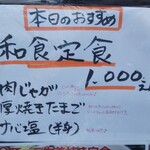 本日のおすすめ
和食定食
1.000
肉じゃが
厚焼きたまご
サバ塩(半身)